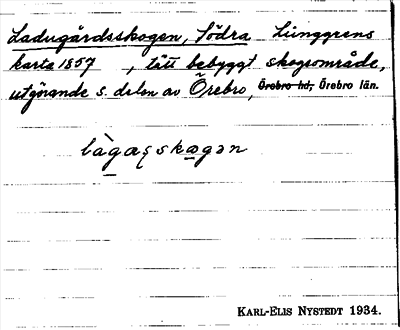 Ladugårdsskogen, Södra Ljunggrens
karta 1857, tätt bebyggt skogsområde,
utgörande s. delen av Örebro, Örebro hd, Örebro län.
làgaʂskogən
KARL-ELIS NYSTEDT 1934.